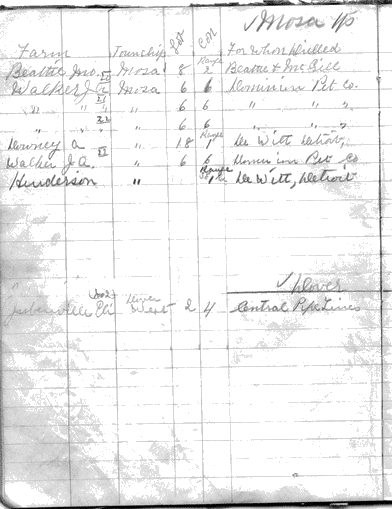 Mosa Tp
Farm Township Lot Con For Whom Drilled
Beattie Mosa 8 Range 2 Beattie & McGill
Walker J A 20 Mosa 6 6 Dominion Pet Co.
" " " 21 " 6 6 " " "
" " " 22 " 6 6 " " "
Downey A " 18 Range 1 De Witt Detroit,
Walker J A. " 6 6 Dominion Pet Co
Henderson " Range 1 De Witt, Detroit
Dover
Eli No 2 Dover West 2 4 Central Pipe Lines